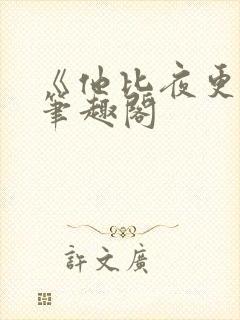 《他比夜更
筆趣閣
許文廣